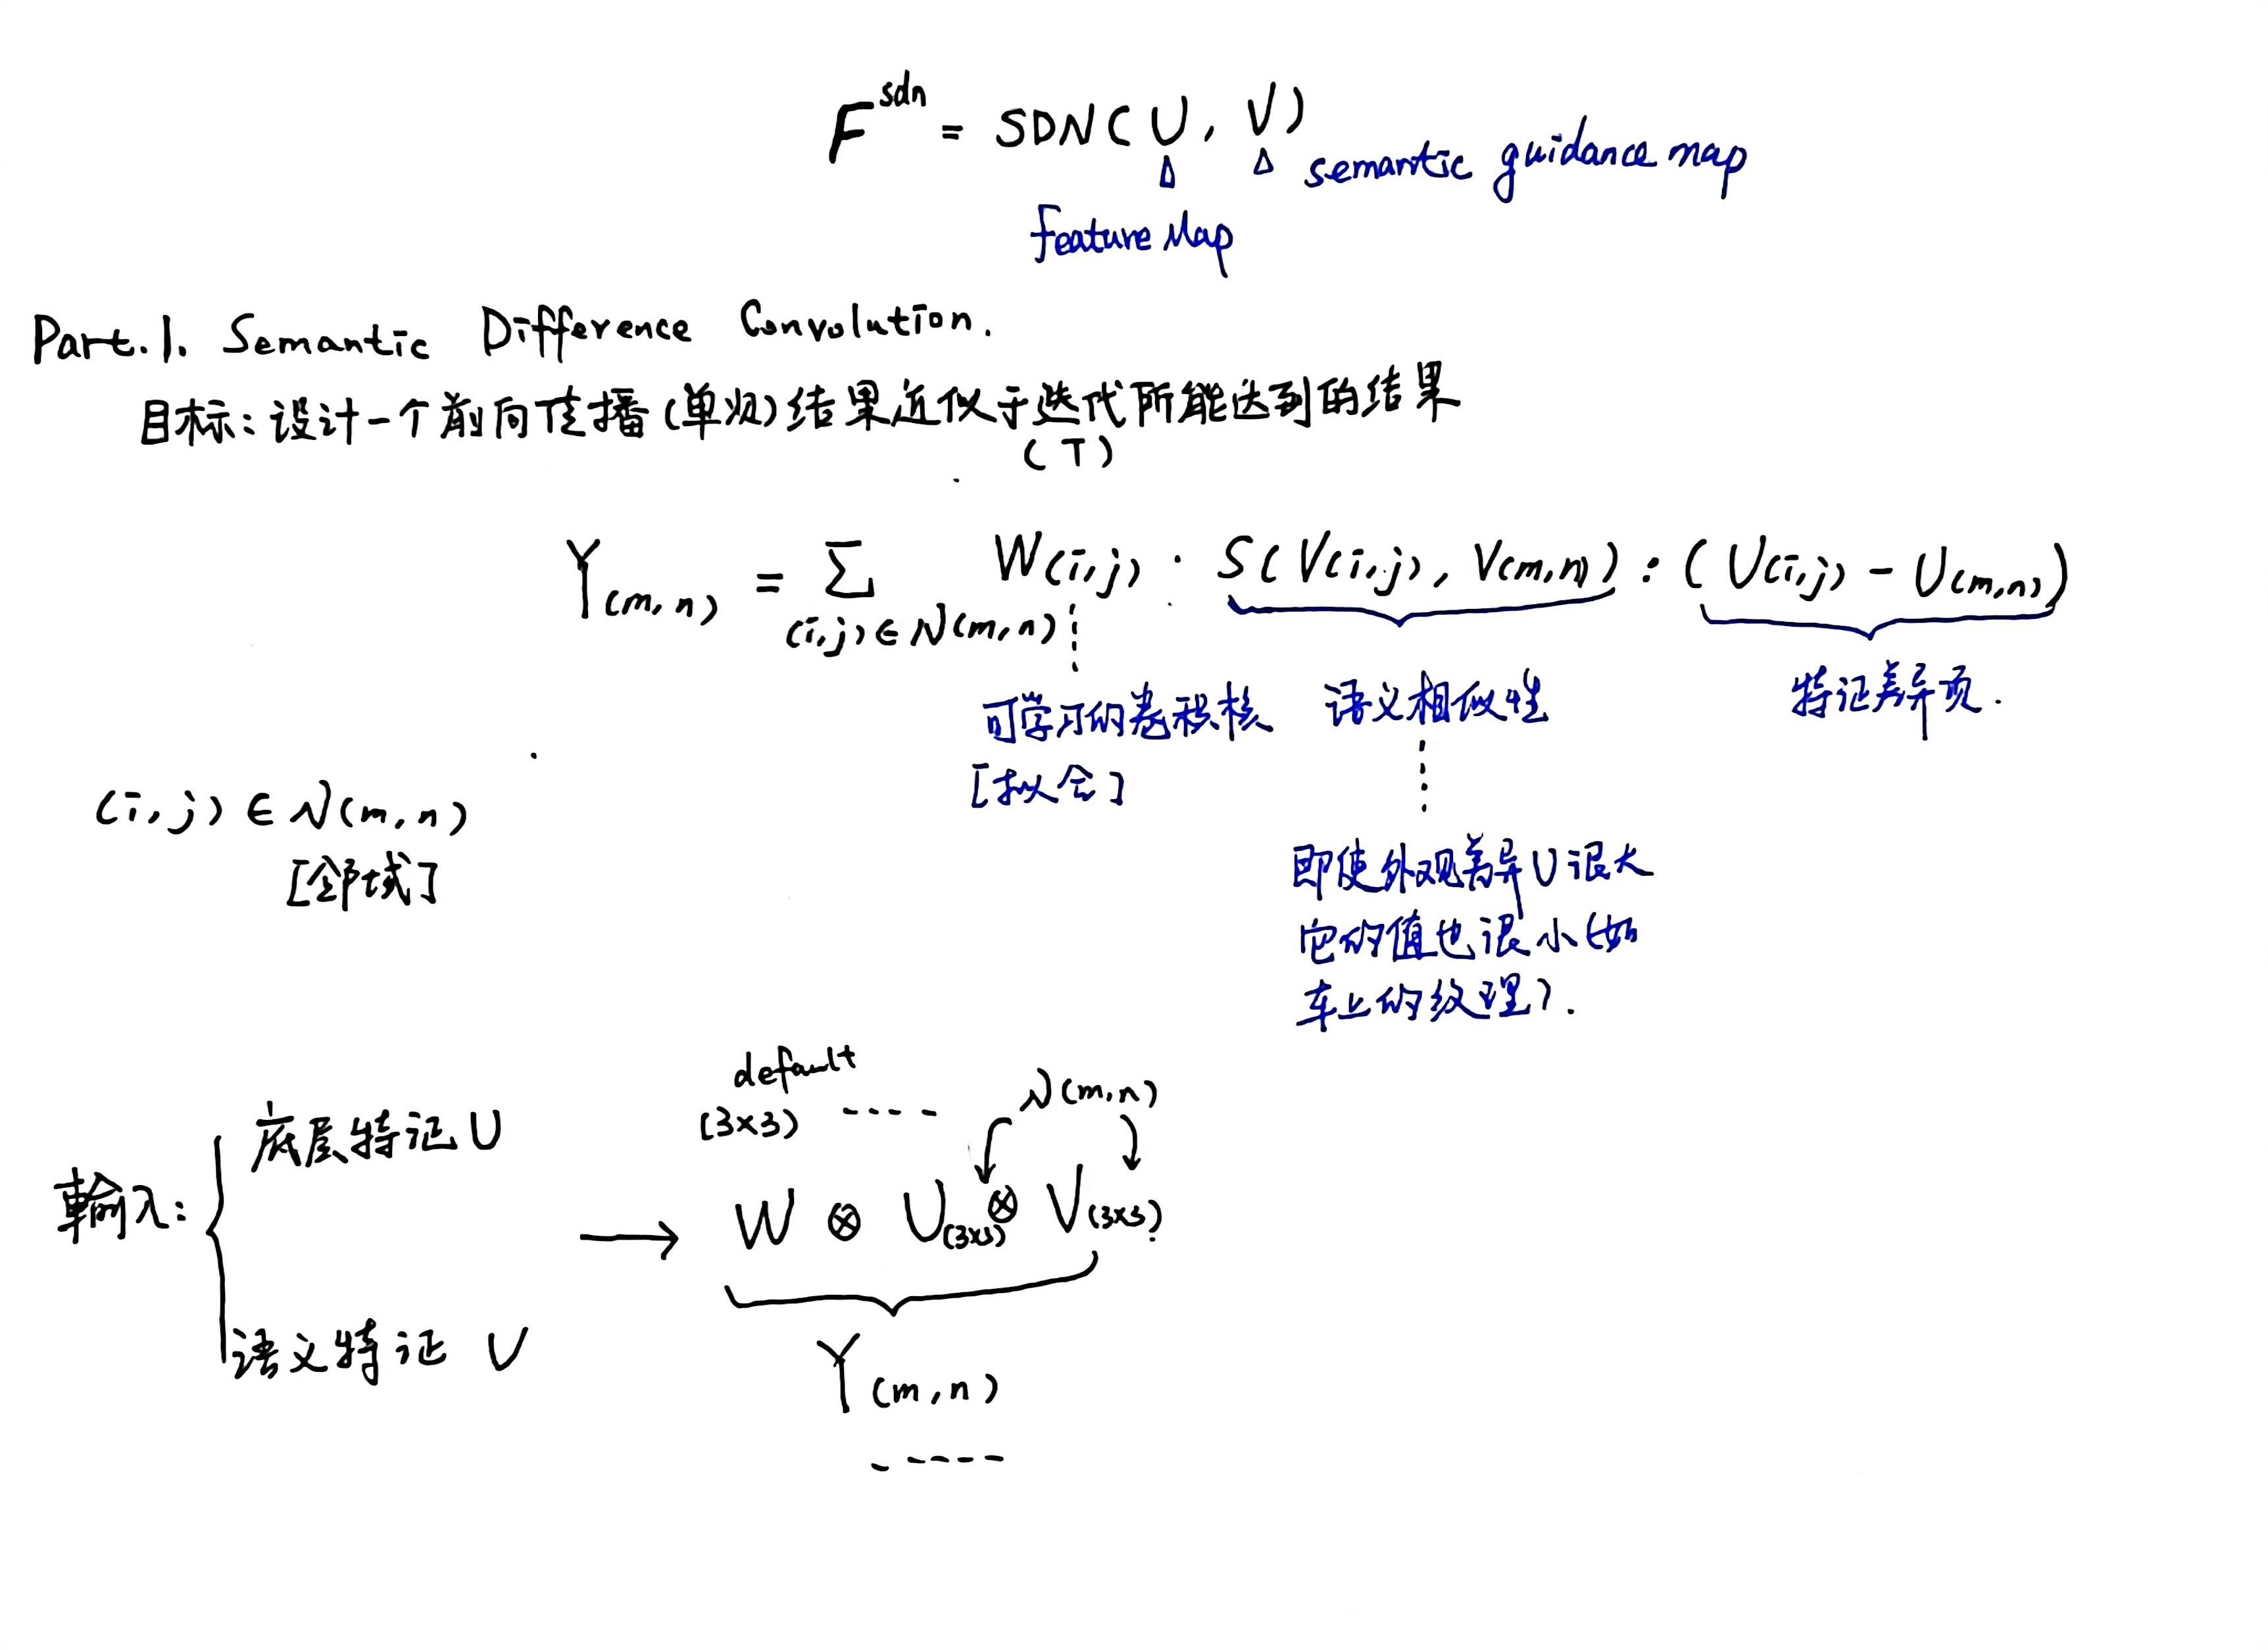 F^sdn = SDN(U, V)
△ △ semantic guidance map
Feature Map
Part.1. Semantic Difference Convolution.
目标:设计一个前向传播(单次)结果近似于迭代所能达到的结果
(T)
Y(m,n) = Σ W(i,j) · S(V(i,j), V(m,n)) · (U(i,j) - U(m,n))
(i,j)∈N(m,n)
可学习的卷积核 语义相似性 特征差异项.
[拟合]
(i,j)∈N(m,n)
[邻域]
即使外观差异U很大
它的值也很小(如
车上的纹理).
default
(3×3) ---- N(m,n)
输入: 底层特征U
→ W ⊗ U(3×3) ⊗ V(3×3)
语义特征 V
Y(m,n)
-----